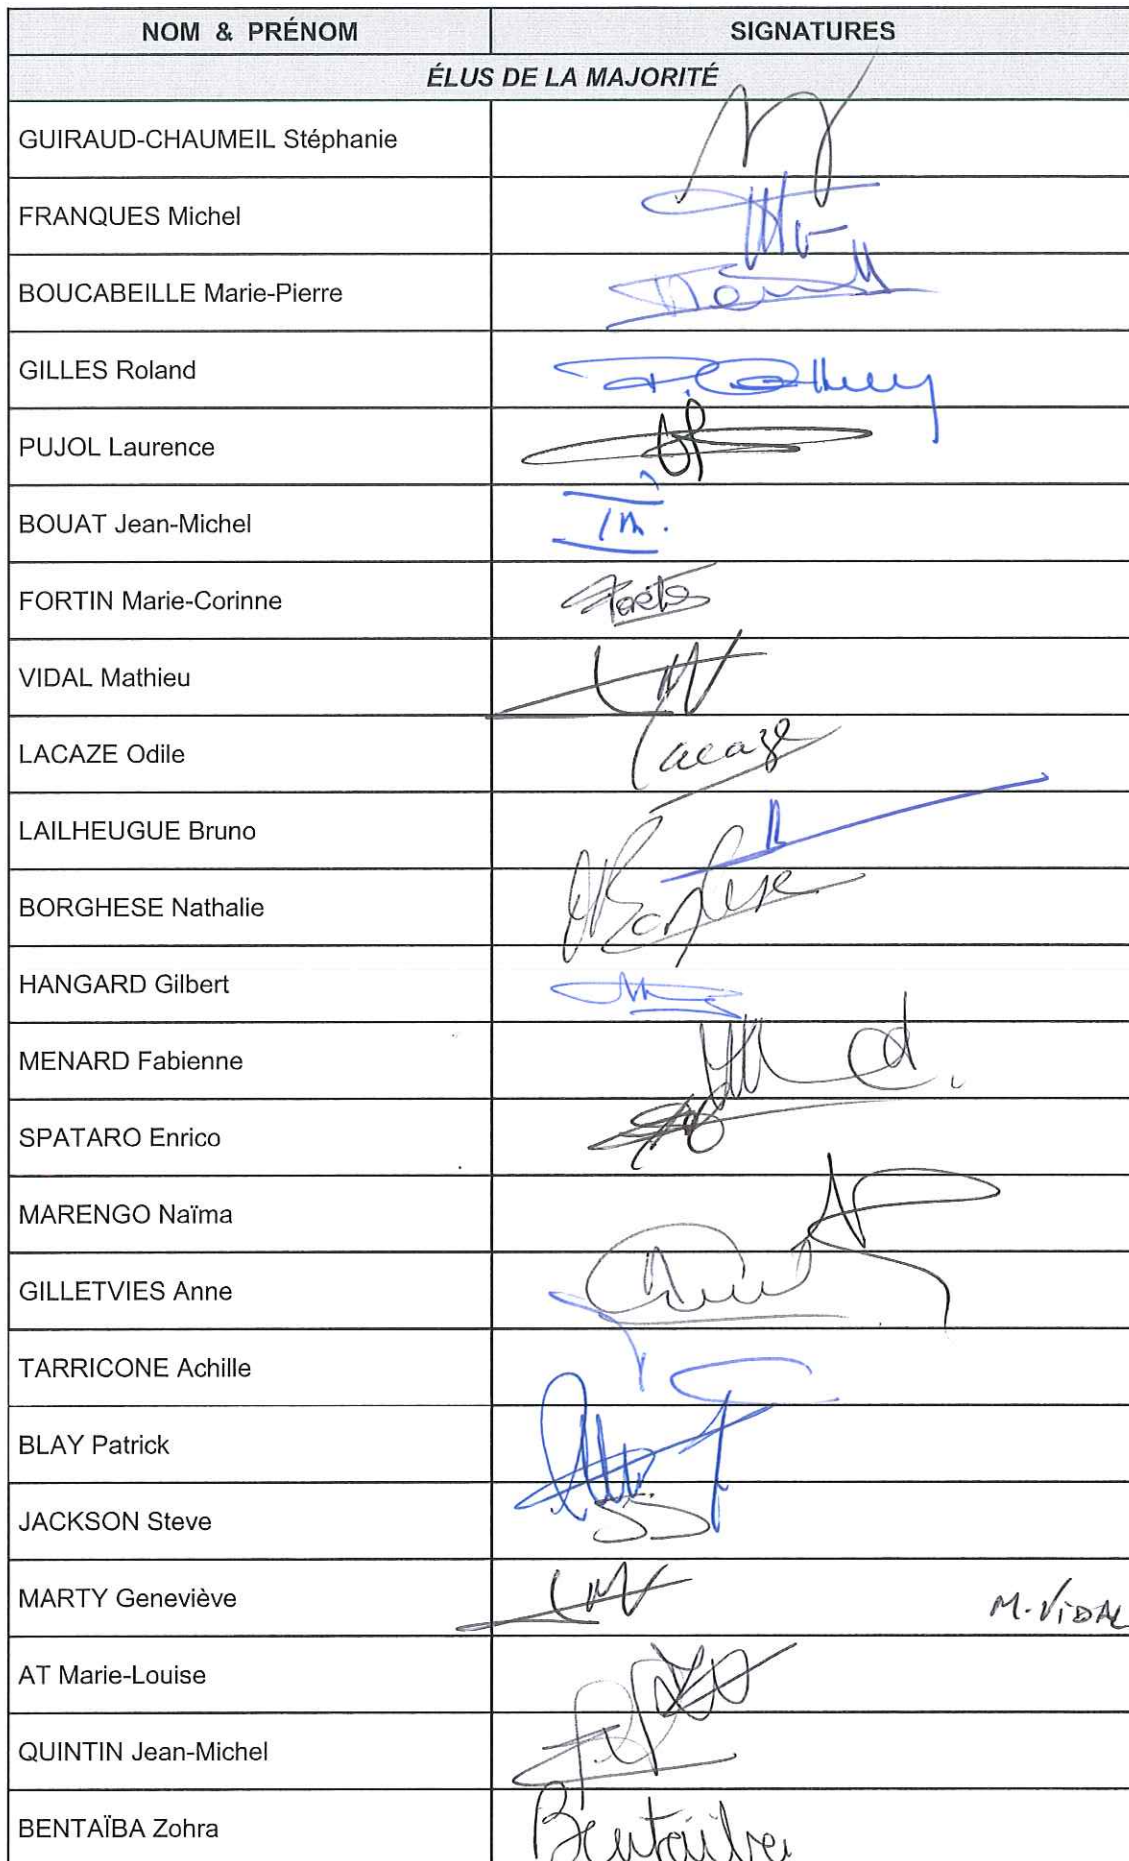 NOM & PRÉNOM SIGNATURES
ÉLUS DE LA MAJORITÉ
GUIRAUD-CHAUMEIL Stéphanie
FRANQUES Michel
BOUCABEILLE Marie-Pierre
GILLES Roland
PUJOL Laurence
BOUAT Jean-Michel
FORTIN Marie-Corinne
VIDAL Mathieu
LACAZE Odile Lacaze
LAILHEUGUE Bruno
BORGHESE Nathalie
HANGARD Gilbert
MENARD Fabienne
SPATARO Enrico
MARENGO Naïma
GILLETVIES Anne
TARRICONE Achille
BLAY Patrick
JACKSON Steve
MARTY Geneviève M. VIDAL
AT Marie-Louise
QUINTIN Jean-Michel
BENTAÏBA Zohra Bentaïba